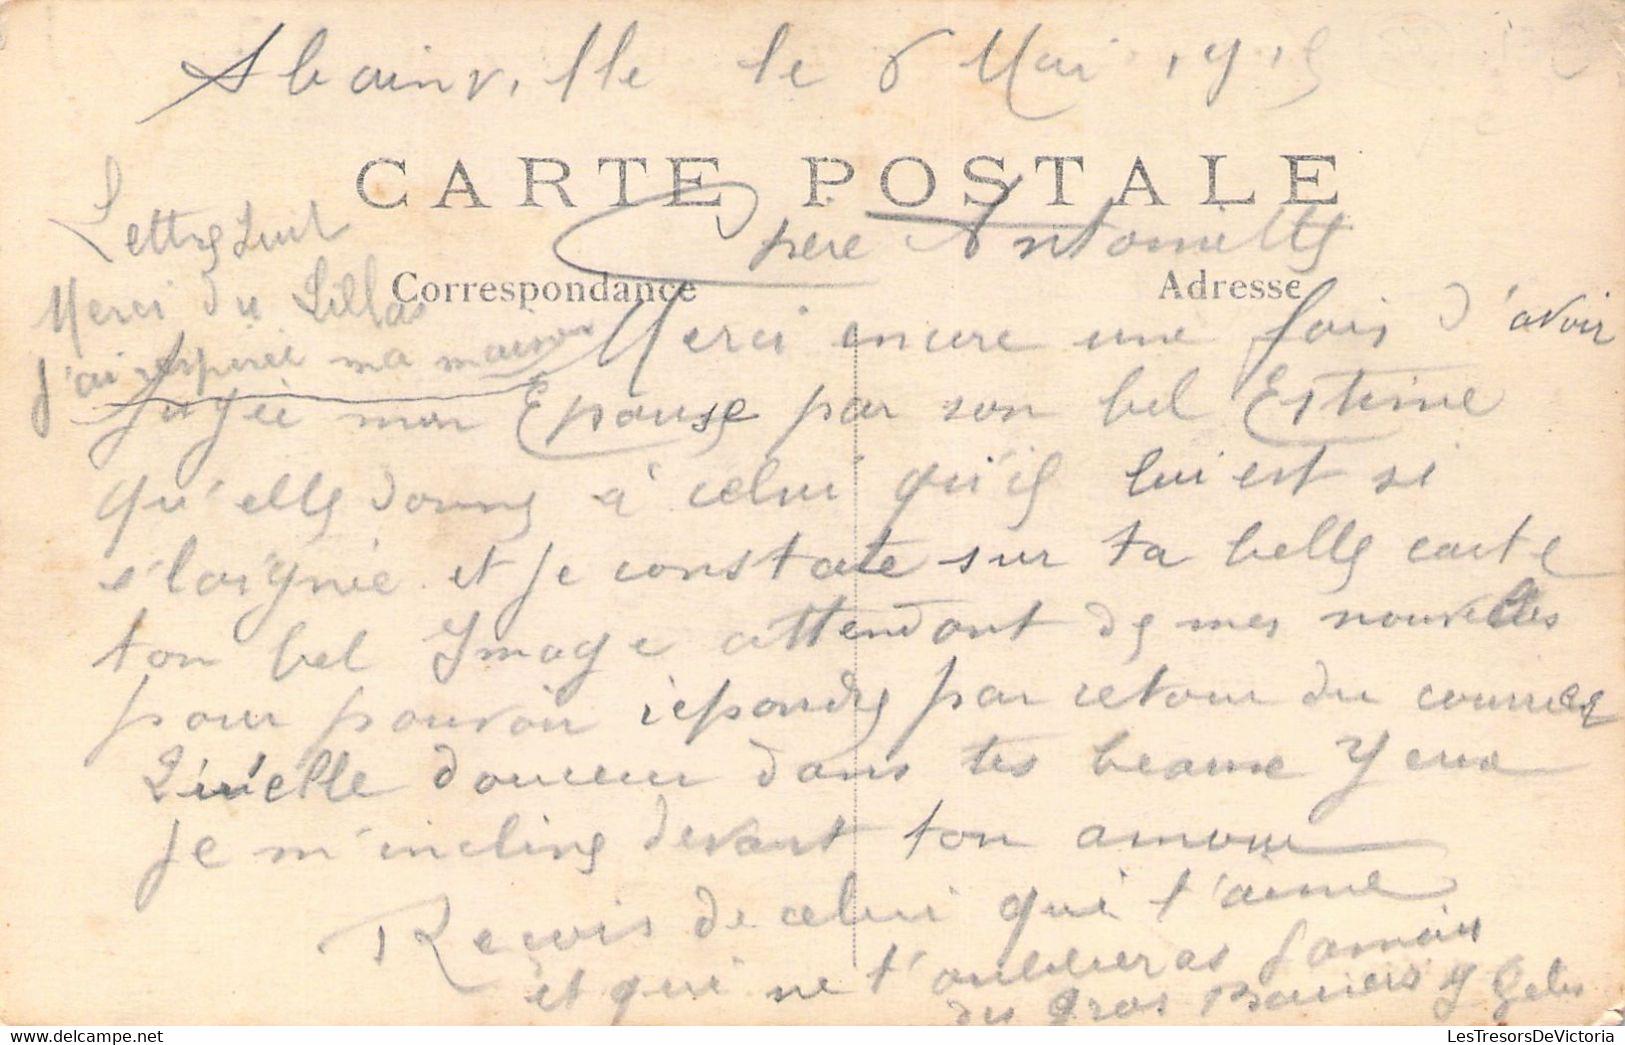 Abainville le 6 Mai 1915
CARTE POSTALE
Chère Antoinette
Correspondance
Adresse
Lettre suit
Merci du Lillas
J'ai respirée ma maison
Merci encore une fois d'avoir
jugée mon Epouse par son bel Estime
qu'elle donne à celui qu'il lui est si
éloignée et je constate sur ta belle carte
ton bel Image attendant de mes nouvelles
pour pouvoir répondre par retour du courrier
Qu'elle douceur dans tes beaux Yeux
Je m'incline devant ton amour
Recois de celui qui t'aime
et qui ne t'oublieras Jamais
des Gros Baisers
LesTresorsDeVictoria